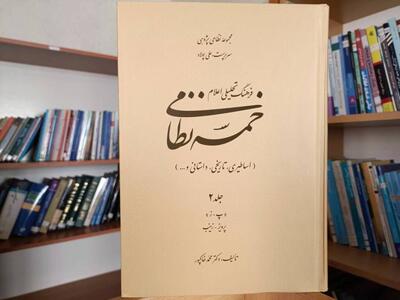 مجموعه نظامی پژوهی
سرپرست: علی پولاد
فرهنگ تحلیلی اعلام
خمسه نظامی
(اساطیری، تاریخی، داستانی و ...)
جلد ۲
«پ - ز»
پرویز - زینب
تألیف: دکتر محمد خاکپور